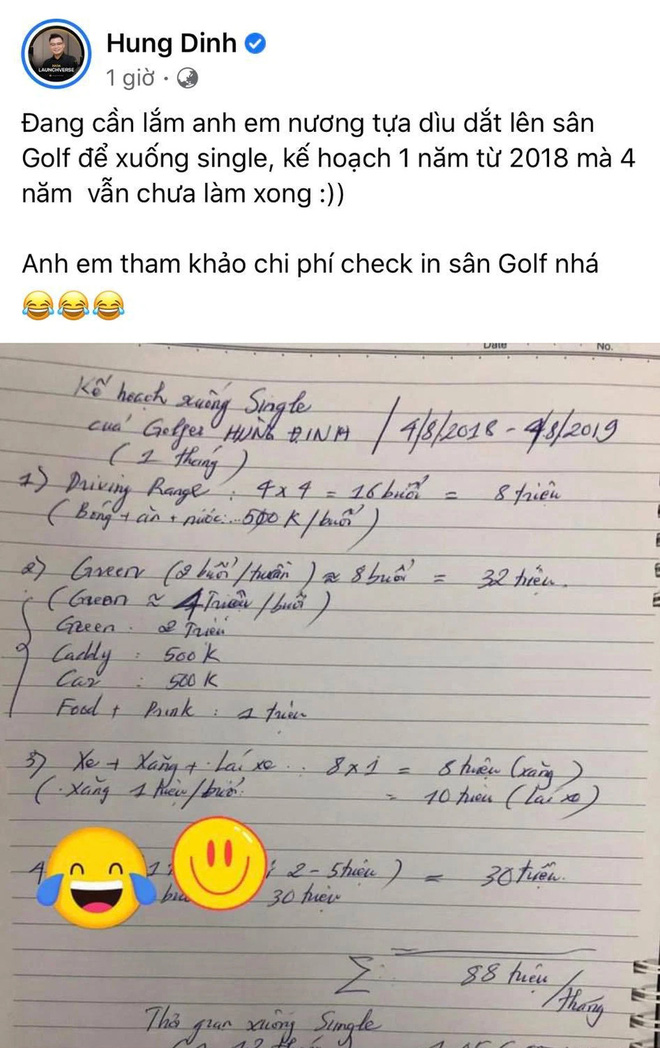 Hung Dinh
1 giờ
LAUNCHVERSE
Đang cần lắm anh em nương tựa dìu dắt lên sân
Golf để xuống single, kế hoạch 1 năm từ 2018 mà 4
năm vẫn chưa làm xong :))
Anh em tham khảo chi phí check in sân Golf nhá
😂😂😂
Date No.
Kế hoạch xuống Single
của Golfer HÙNG ĐINH / 4/8/2018 - 4/8/2019
(1 tháng)
1) Driving Range : 4 x 4 = 16 buổi = 8 triệu
(Bóng + ăn + nước: 500 K/buổi)
2) Green (2 buổi/tuần) ≈ 8 buổi = 32 triệu.
(Green ≈ 4 Triệu/buổi)
Green : 2 Triệu
Caddy : 500 K
Car : 500 K
Food + Drink : 1 triệu
3) Xe + Xăng + Lái xe : 8 x 1 = 8 triệu (xăng)
(Xăng 1 triệu/buổi = 10 triệu (Lái xe)
4 : 2 - 5 triệu) = 30 triệu.
30 triệu
Σ 88 triệu/tháng
Thời gian xuống Single